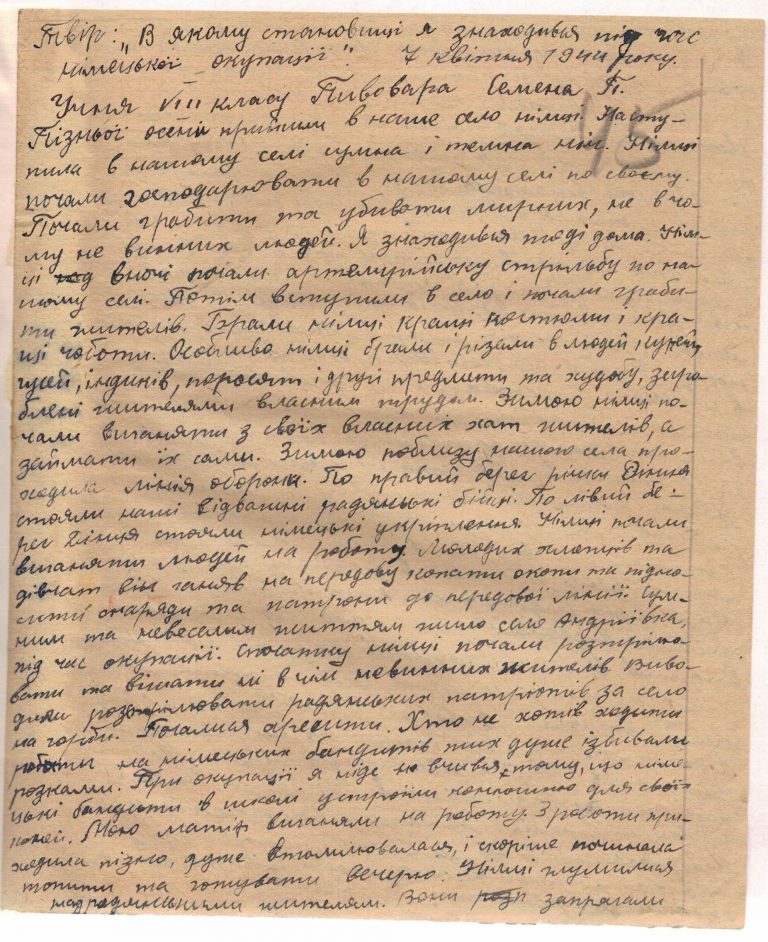 Твір: „В якому становищі я знаходивья під час
німецької окупації". 7 квітня 1944 року.
Учня VIII класу Пивовара Семена П.
45
Пізньої осені прийшли в наше село німці. Насту-
пила в нашому селі сумна і темна ніч. Німці
почали господарювати в нашому селі по своєму.
Почали грабити та убивати мирних, не в чо-
му не винних людей. Я знаходивья тоді дома. Нім-
ці вночі почали артелирійську стрільбу по на-
шому селі. Потім вступили в село і почали граби-
ти жителів. Бррали німці кращі костюми і кра-
щі чоботи. Особливо німці брали і різали в людей, курей,
гусей, індиків, поросят і другі предмети та худобу, заро-
блені жителями власним трудом. Зимою німці по-
чали виганяти з своїх власних хат жителів, а
займати їх сами. Зимою поблизу нашого села про-
ходила лінія оборони. По правий берег річки Дінця
стояли наші відважні радянські бійці. По лівий бе-
рег Дінця стояли німецькі укріплення. Німці почали
виганяти людей на роботу. Молодих хлопців та
дівчат він ганяв на передову копати окопи та підно-
сити снаряди та патрони до передової лінії. Сум-
ним та невеселым життям жило село Андріївка,
під час окупації. Спочатку німці почали розтріля-
вати та вішати ні в чім невинних жителів. Виво-
дили розстрілювати радянських патріотів за село
на горби. Почалися арешти. Хто не хотів ходити
роботы на німецьких бандитів тих дуже ізбивали
розками. При окупації я ніде не вчився, тому, що німе-
цькі бандити в школі устроїли конюшню для своїх
коней. Мою матір виганяли на роботу. З роботи при-
ходила пізно, дуже втомлювалася, і скоріше починала
топити та готувати вечерю. Німці глумилися
над радянськими жителям. Вони запрягали